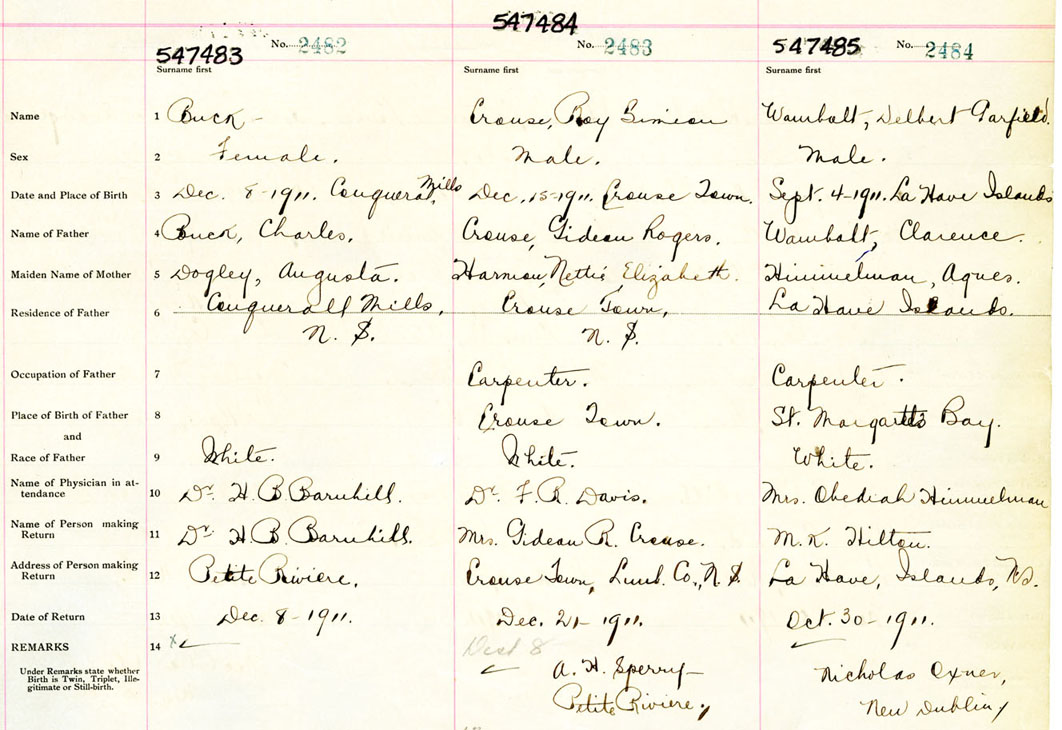 547484
547483 No. 2482 No. 2483 547485 No. 2484
Surname first Surname first Surname first
Name 1 Buck - Crouse, Roy Simeon Wambolt, Delbert Garfield.
Sex 2 Female. Male. Male.
Date and Place of Birth 3 Dec. 8-1911. Conquerall Mills Dec. 15-1911. Crouse Town. Sept. 4-1911. La Have Islands
Name of Father 4 Buck, Charles. Crouse, Gideon Rogers. Wambolt, Clarence.
Maiden Name of Mother 5 Dogley, Augusta. Harmon, Nettie Elizabeth. Himmelman, Agnes.
Residence of Father 6 Conquerall Mills, Crouse Town, La Have Islands.
N. S. N. S.
Occupation of Father 7 Carpenter. Carpenter.
Place of Birth of Father 8 Crouse Town. St. Margarets Bay.
and
Race of Father 9 White. White. White.
Name of Physician in at-
tendance 10 Dr. H. B. Barnhill. Dr. F. R. Davis. Mrs. Obediah Himmelman
Name of Person making
Return 11 Dr. H. B. Barnhill. Mrs. Gideon R. Crouse. M. K. Hilton.
Address of Person making
Return 12 Petite Riviere. Crouse Town, Lunb. Co., N. S. La Have, Islands, N.S.
Date of Return 13 Dec. 8-1911. Dec. 21-1911. Oct. 30-1911.
REMARKS 14 x Dist 8
Under Remarks state whether
Birth is Twin, Triplet, Ille-
gitimate or Still-birth.
A. H. Sperry Nicholas Oxner,
Petite Riviere. New Dublin